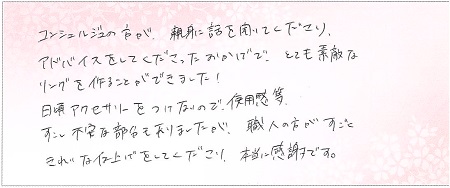 コンシェルジュの方が、親身に話を聞いてくださり、
アドバイスをしてくださったおかげで、とても素敵な
リングを作ることができました!
日頃アクセサリーをつけないので、使用感等、
すこし不安な部分もありましたが、職人の方がすごく
きれいな仕上げをしてくださり、本当に感謝です。